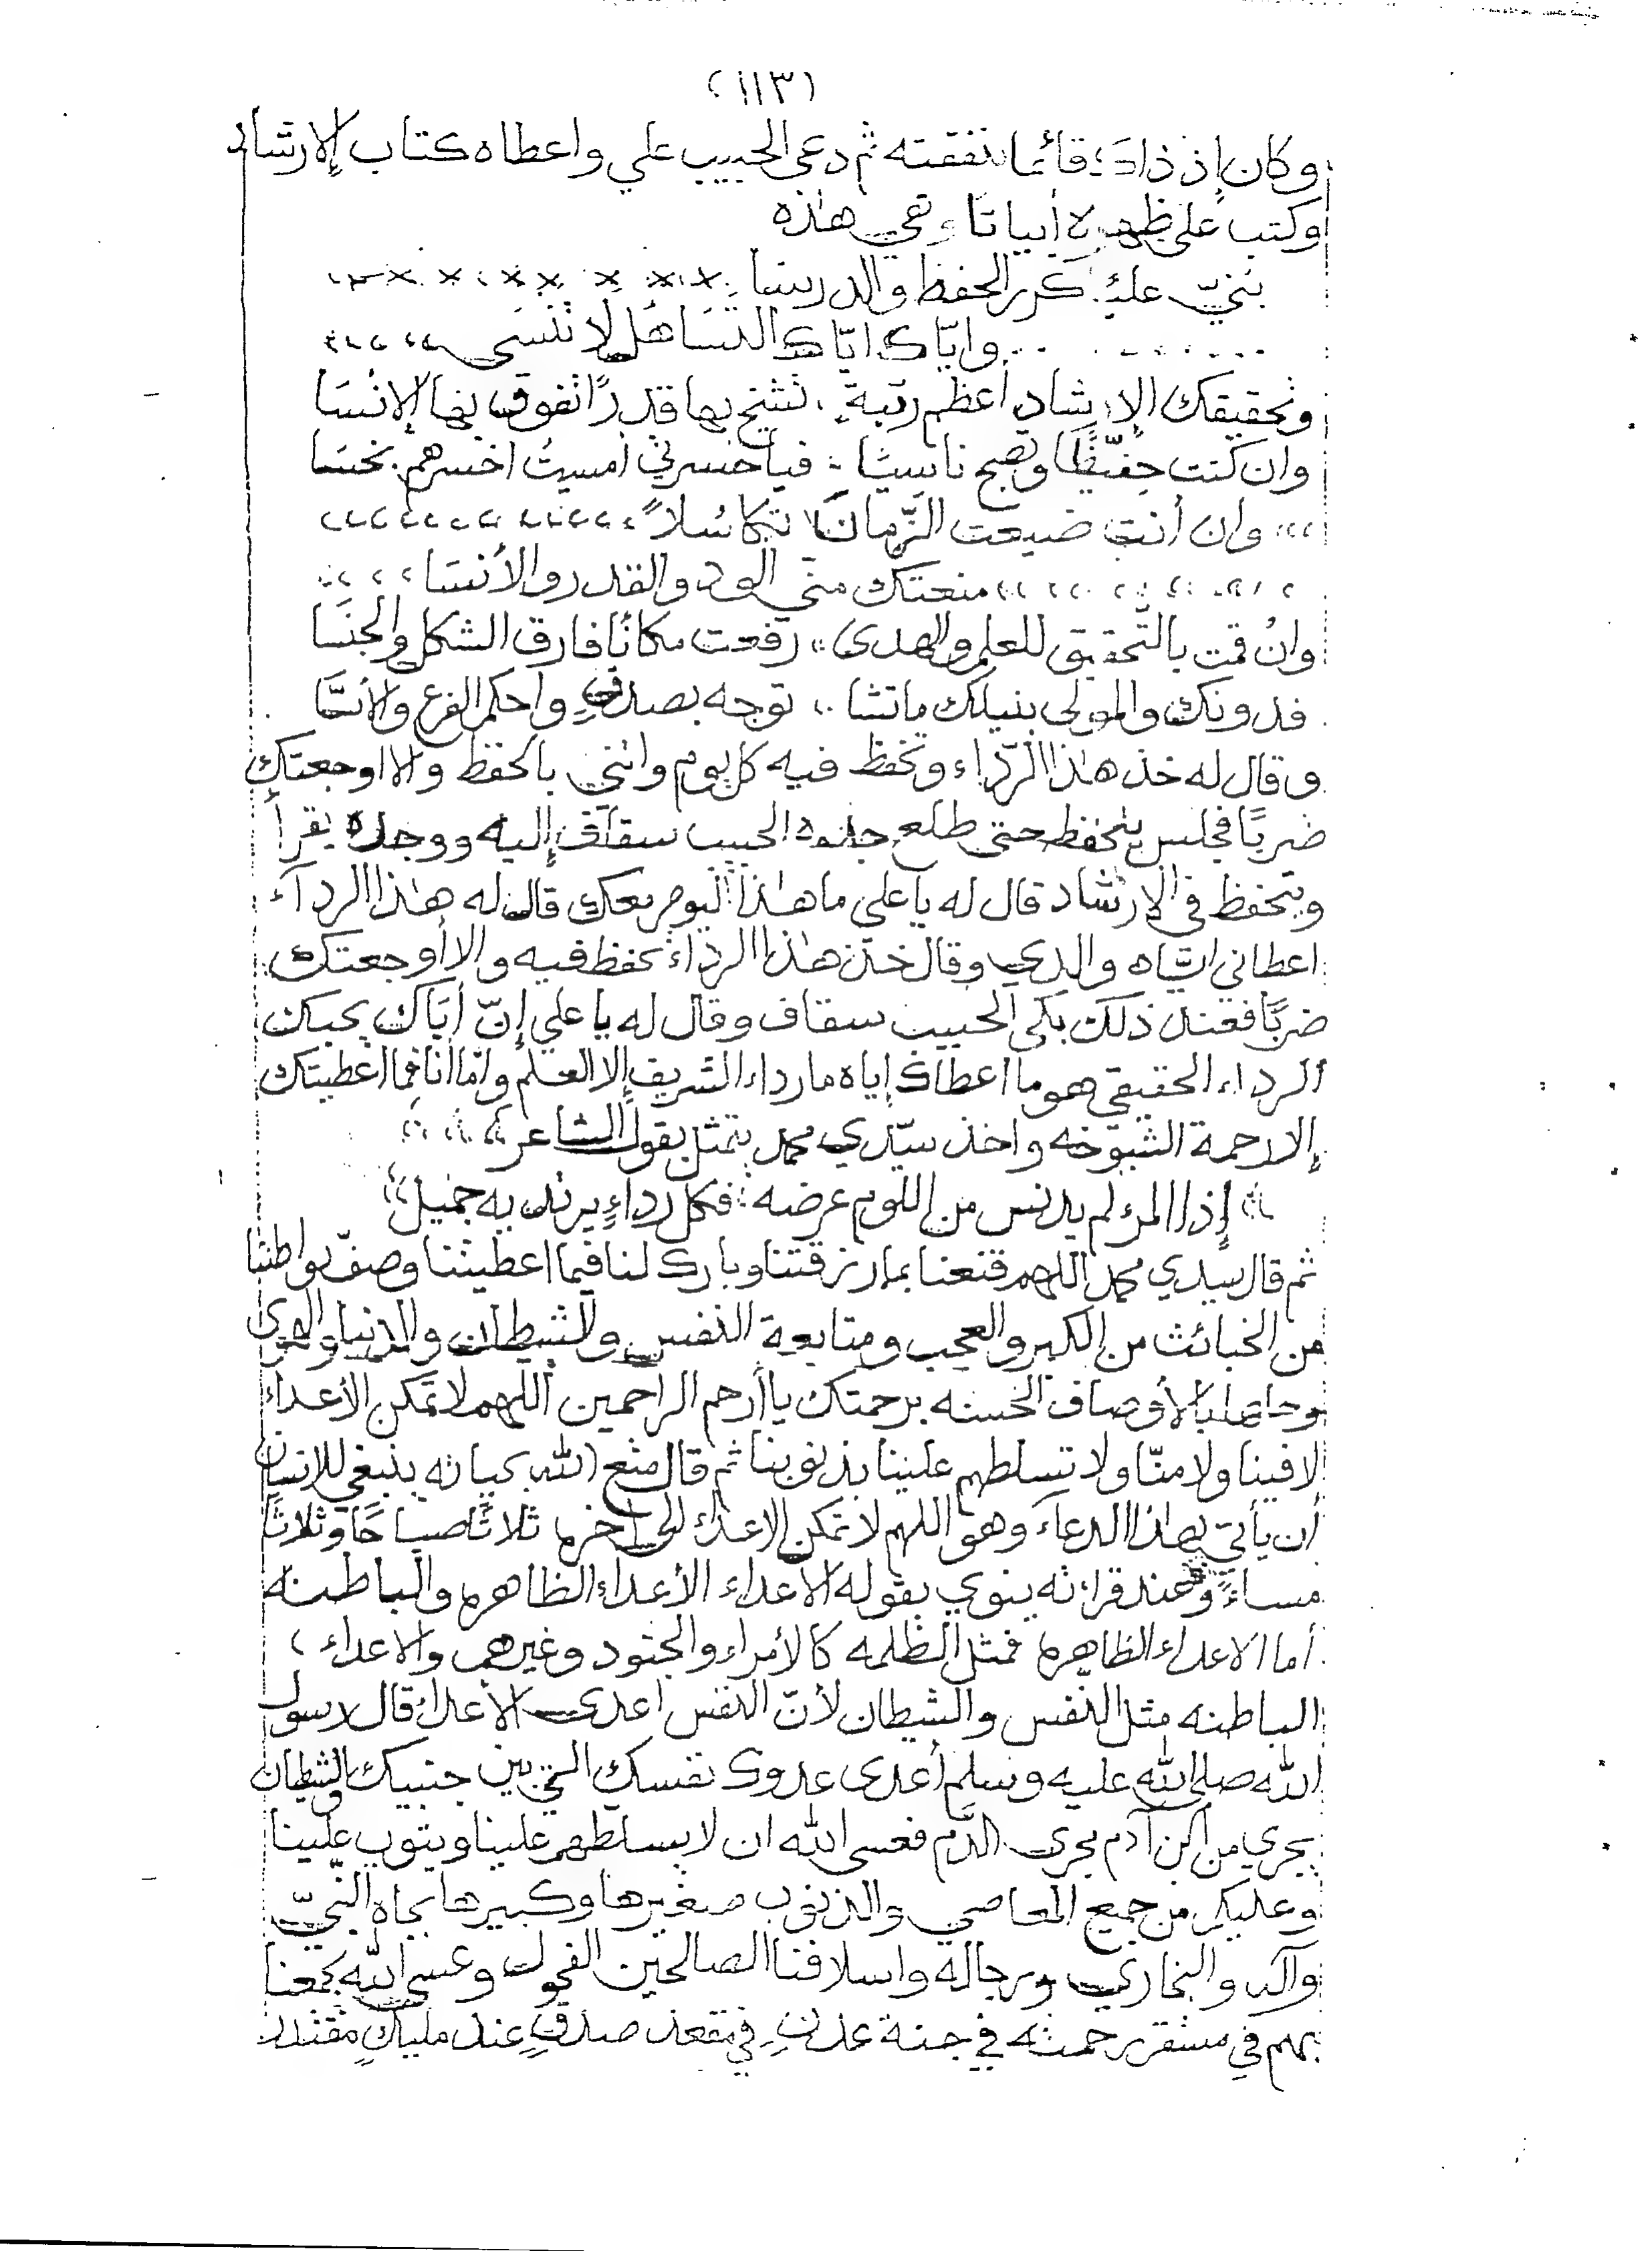 (١١٣)
وكان إذ ذاك قائما بنفقته ثم دعى الحبيب علي واعطاه كتاب الإرشاد
وكتب على ظهره أبياتا وهي هٰذه
بنيّ عليك كرر الحفظ والدرسا
وايّاك ايّاك التساهل لا تنسى
وتحقيقك الإرشاد أعظم رتبة ، تشيخ بها قدرًا تفوق بها الإنسا
وان كنت حفّيظًا وتصبح ناسيًا فياحسرتي أمسيتُ اخسرهم بخسا
وان أنت ضيعت الزّمان تكاسلاً
منعتك منّي الود والقدر والأنسا
وانْ قمت بالتّحقيق للعلم والهدى ، رفعت مكانًا فارق الشكل والجنسا
فدونك والمولى ينيلك ماتشا ، توجه بصدقٍ واحكم الفرع والأسّا
وقال له خذ هٰذا الرّداء وتحفظ فيه كل يوم وائتني بالحفظ والا اوجعتك
ضربًا فجلس يتحفظ حتى طلع جده الحبيب سقاف إليه ووجده يقرأ
ويتحفظ في الإرشاد قال له ياعلي ماهٰذا اليوم معك قال له هٰذا الردآء
اعطاني ايّاه والدي وقال خذ هٰذا الرداء تحفظ فيه والا أوجعتك
ضربًا فعند ذلك بكى الحبيب سقاف وقال له ياعلي إنّ أباك يحبك
الرداء الحقيقي هو ما اعطاك إياه مارداء الشريف إلا العلم وامّا أنا فما اعطيتك
إلا رحمة الشيوخه واخذ سيّدي محمد يتمثل بقول الشاعر
إذا المرء لم يدنس من اللوم عرضه ؛ فكل رداءٍ يرتديه جميل
ثم قال سيدي محمد اللهم قنعنا بما رزقتنا وبارك لنا فيما اعطيتنا وصفّ بواطننا
من الخبائث من الكبر والعجب ومتابعة النفس والشيطان والدنيا والهوى
وحلها بالأوصاف الحسنه برحمتك يا أرحم الراحمين اللهم لا تمكن الأعداء
لا فينا ولا منّا ولا تسلطهم علينا بذنوبنا ثم قال متع الله بحياته ينبغي للإنسان
أن يأتي بهٰذا الدعاء وهو اللهم لا تمكن الاعداء الى آخره ثلاثًا صباحًا وثلاثًا
مساءً وعند قرائته ينوي بقوله الاعداء الأعداء الظاهره والباطنه
أما الاعداء الظاهره فمثل الظلمه كالأمراء والجنود وغيرهم والاعداء
الباطنه مثل النفس والشيطان لأنّ النفس اعدى الأعداء قال رسول
الله صلى الله عليه وسلم أعدى عدوك نفسك التي بين جنبيك والشيطان
يجري من ابن آدم مجرى الدّم فعسى الله ان لا يسلطهم علينا ويتوب علينا
وعليكم من جميع المعاصي والذنوب صغيرها وكبيرها بجاه النّبيّ
وآله والبخاري ورجاله واسلافنا الصالحين الفحول وعسى الله يجمعنا
بهم في مستقر رحمته في جنة عدنٍ في مقعد صدقٍ عند مليكٍ مقتدر